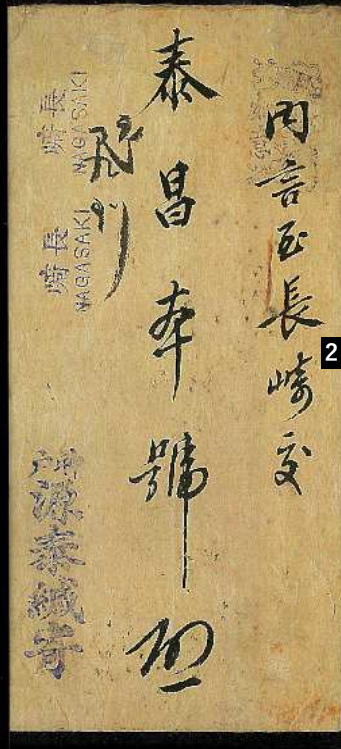 內言至長崎交
泰昌本號
飛
長崎
NAGASAKI
長崎
NAGASAKI
源泰緘寄
2